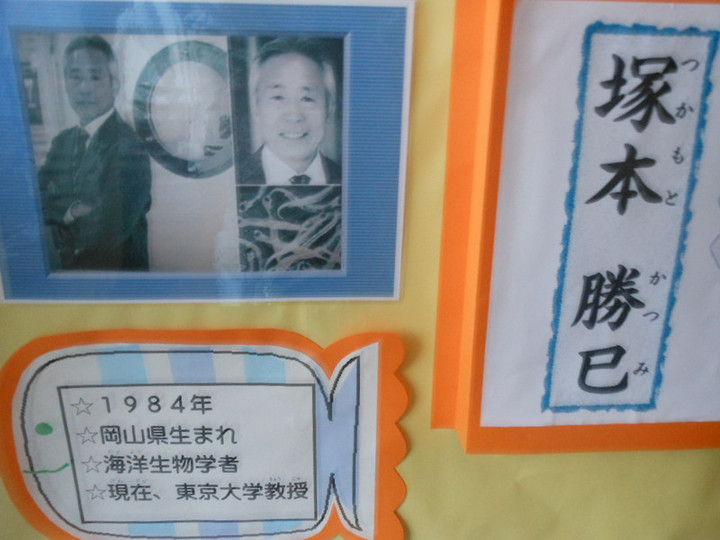 塚本 勝巳
つかもと かつみ
☆1984年
☆岡山県生まれ
☆海洋生物学者
☆現在、東京大学教授